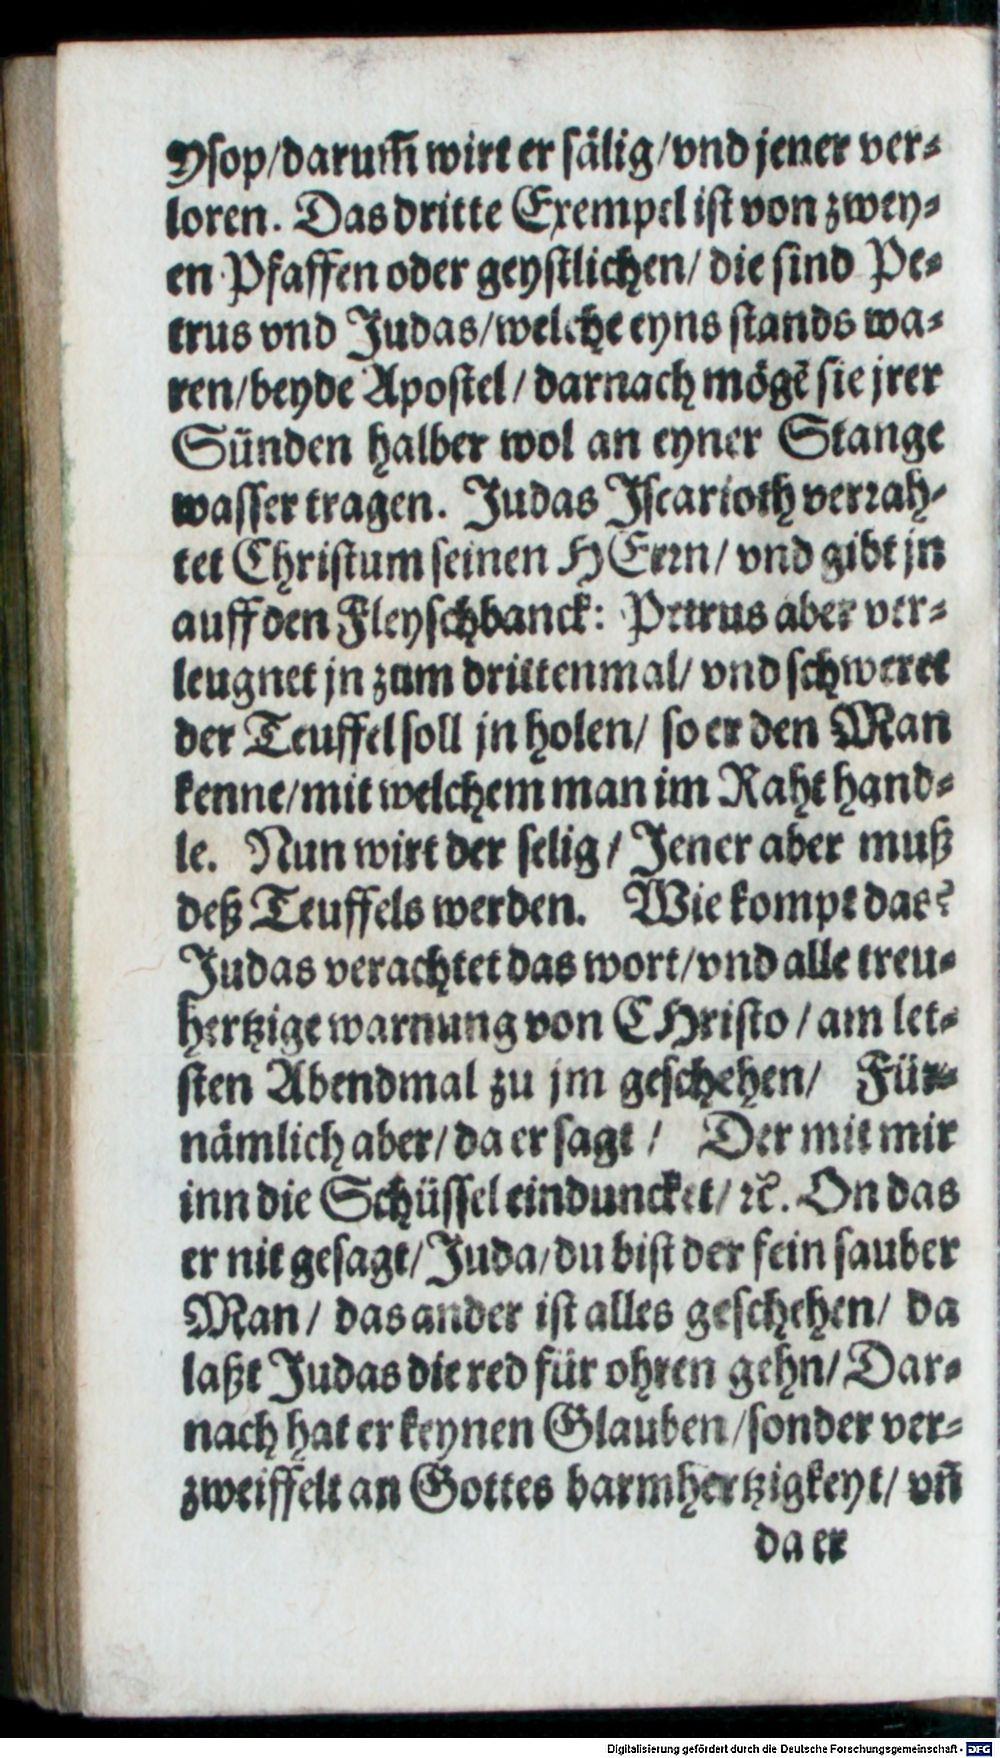 Ysop/darum̃ wirt er sälig/vnd jener ver-
loren. Das dritte Exempel ist von zwey-
en Pfaffen oder geystlichen/ die sind Pe-
trus vnd Judas/welche eyns stands wa-
ren/beyde Apostel/ darnach mögẽ sie jrer
Sünden halber wol an eyner Stange
wasser tragen. Judas Iscarioth verrah-
tet Christum seinen HErrn/ vnd gibt jn
auff den Fleyschbanck: Petrus aber ver-
leugnet jn zum drittenmal/ vnd schweret
der Teuffel soll jn holen/ so er den Man
kenne/mit welchem man im Raht hand-
le. Nun wirt der selig/ Jener aber muß
deß Teuffels werden. Wie kompt das?
Judas verachtet das wort/vnd alle treu-
hertzige warnung von CHristo/am let-
sten Abendmal zu jm geschehen/ Für-
nämlich aber/da er sagt/ Der mit mir
inn die Schüssel eindunckt/ ꝛc̃. On das
er nit gesagt/Juda/du bist der fein sauber
Man/ das ander ist alles geschehen/ da
laßt Judas die red für ohren gehn/ Dar-
nach hat er keynen Glauben/sonder ver-
zweiffelt an Gottes barmhertzigkeyt/ vñ
da er
Digitalisierung gefördert durch die Deutsche Forschungsgemeinschaft - DFG